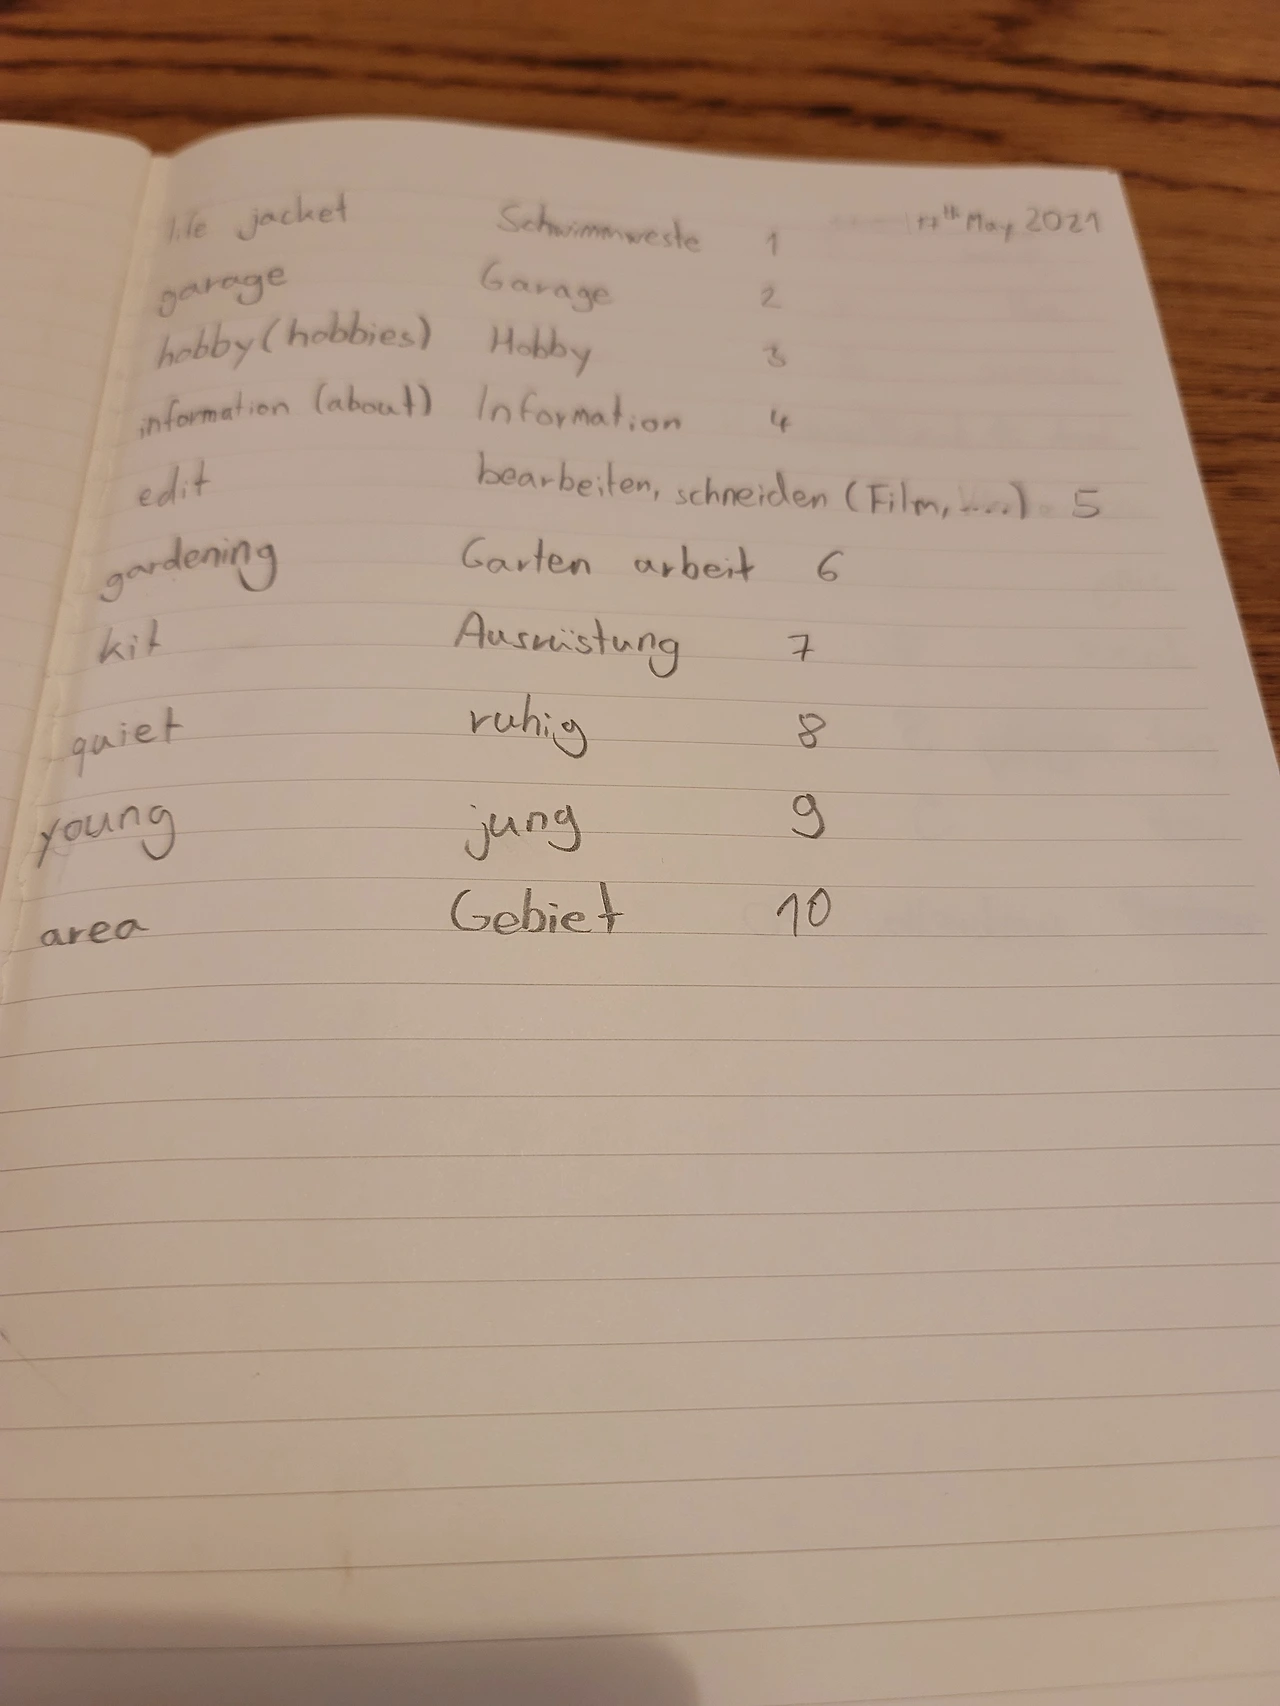 life jacket Schwimmweste 1 17th May 2021
garage Garage 2
hobby (hobbies) Hobby 3
information (about) Information 4
edit bearbeiten, schneiden (Film, ....) 5
gardening Garten arbeit 6
kit Ausrüstung 7
quiet ruhig 8
young jung 9
area Gebiet 10